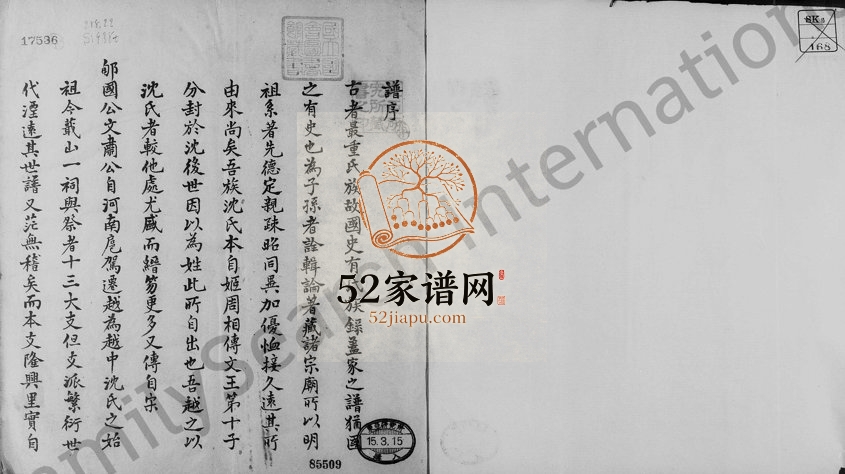 譜序
古者最重氏族故國史有氏族錄蓋家之譜猶國
之有史也為子孫者詮輯論著藏諸宗廟所以明
祖系著先德定親疎昭同異加優恤接久遠其所
由來尚矣吾族沈氏本自姬周相傳文王第十子
分封於沈後世因以為姓此所自出也吾越之以
沈氏者較他處尤盛而縉笏更多又傳自宋
郇國公文肅公自河南扈駕遷越為越中沈氏之始
祖今蕺山一祠與祭者十三大支但支派繁衍世
代湮遠其世譜又茫無稽矣而本支隆興里實自
17536
85509
15.3.15
SK 2
168
52家谱网
52jiapu.com
FamilySearch International